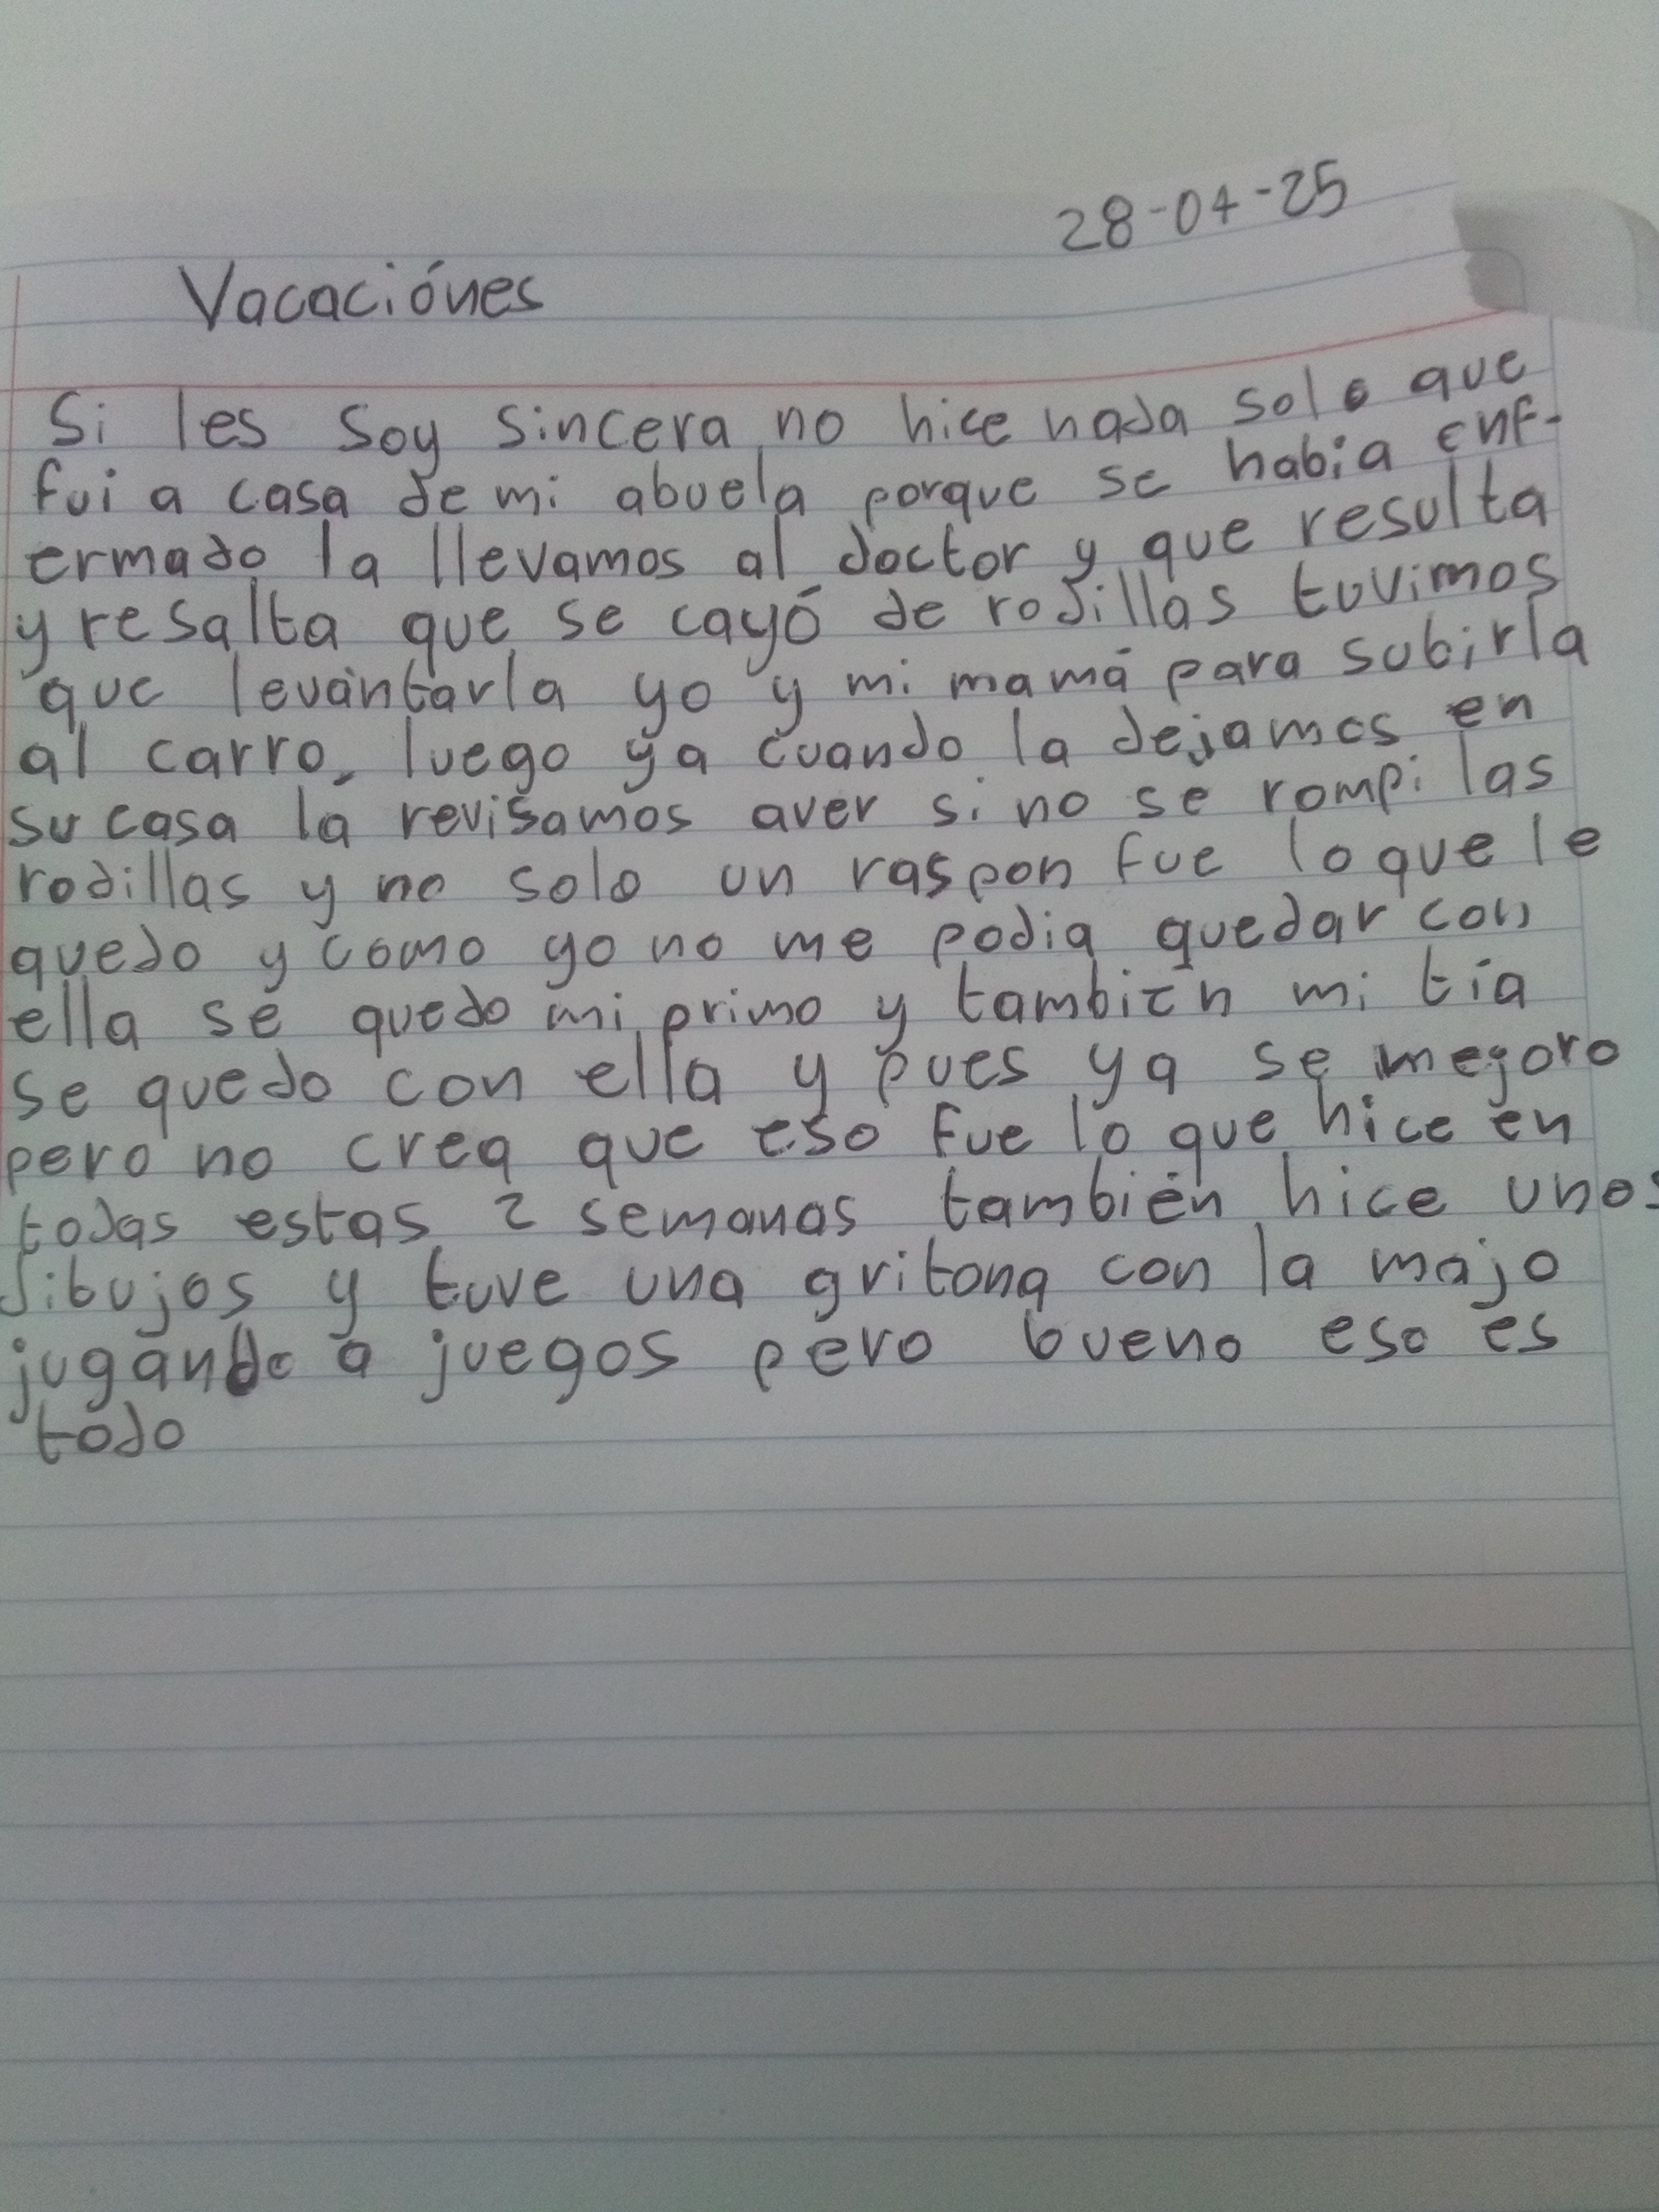 28-04-25
Vacaciónes
Si les soy sincera no hice nada solo que
fui a casa de mi abuela porque se habia enf-
ermado la llevamos al doctor y que resulta
y resalta que se cayó de rodillas tuvimos
que levantarla yo y mi mamá para subirla
al carro, luego ya cuando la dejamos en
su casa la revisamos aver si no se rompi las
rodillas y no solo un raspon fue lo que le
quedo y como yo no me podia quedar con
ella se quedo mi primo y también mi tía
se quedo con ella y pues ya se mejoro
pero no crea que eso fue lo que hice en
todas estas 2 semanas también hice unos
dibujos y tuve una gritona con la majo
jugando a juegos pero bueno eso es
todo